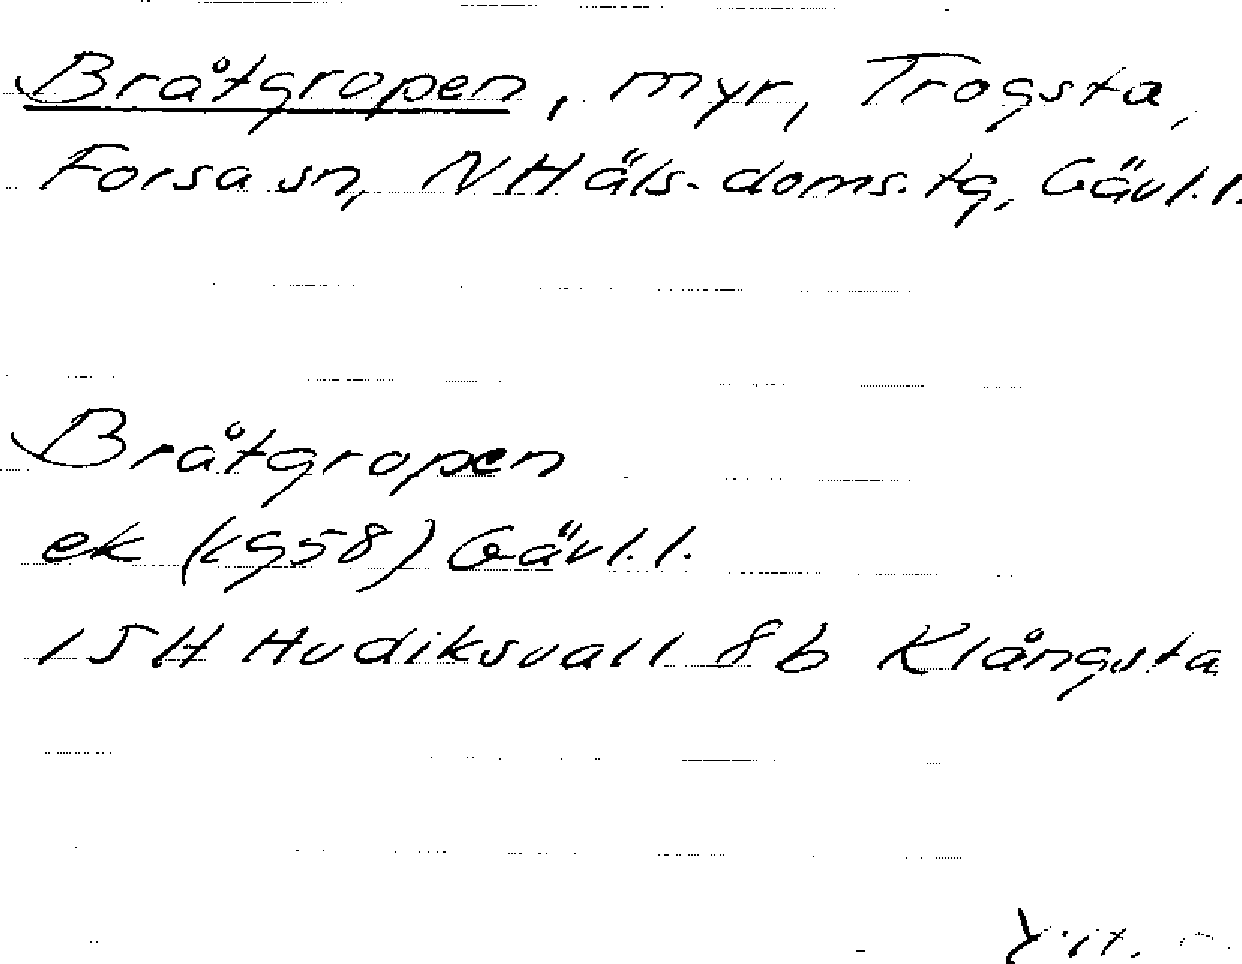 Bråtgropen, myr, Trogsta,
Forsa sn, N Häls. doms. tg, Gävl. l.
Bråtgropen
ek (1958) Gävl. l.
15H Hudiksvall 8b Klångsta